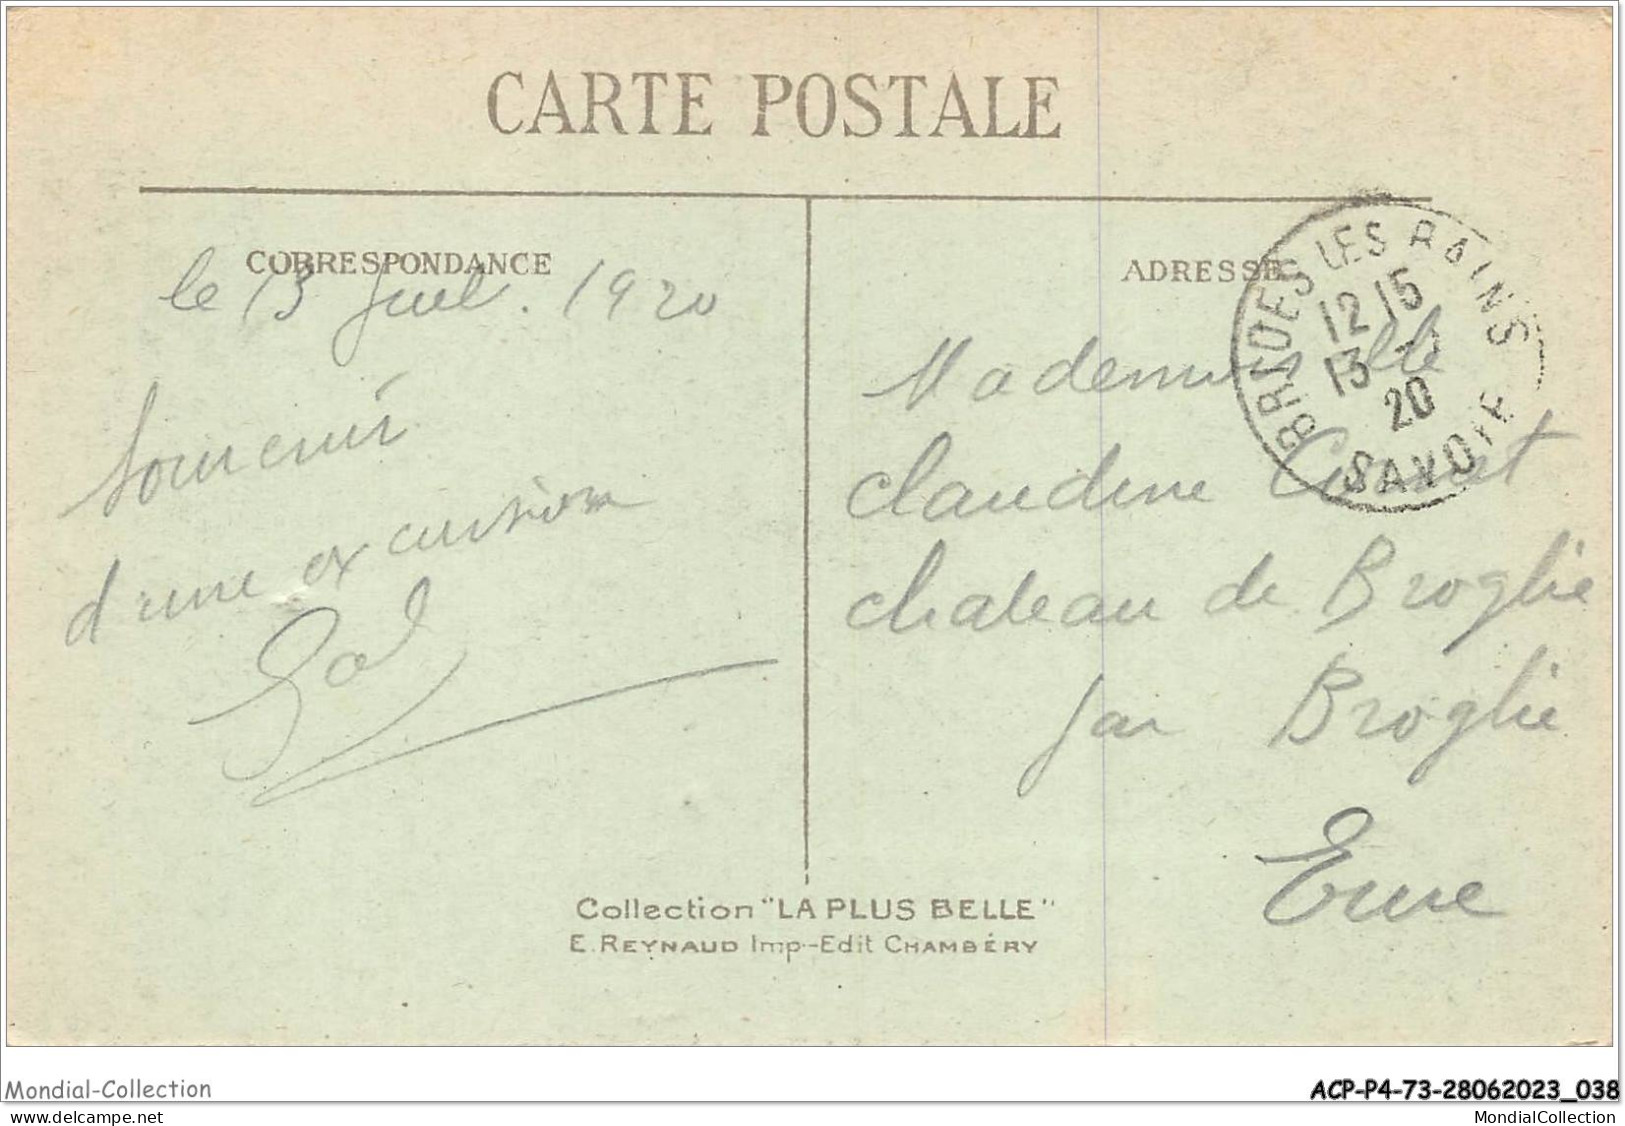 CARTE POSTALE
CORRESPONDANCE
le 13 Juil. 1920
Souvenir
d'une excursion
ADRESSE
BRIDES LES BAINS
12 15
13 -7
20
SAVOIE
Mademoiselle
Claudine
chateau de Broglie
par Broglie
Eure
Collection "LA PLUS BELLE"
E. REYNAUD Imp.-Edit CHAMBÉRY
Mondial-Collection
ACP-P4-73-28062023_038
www.delcampe.net
MondialCollection